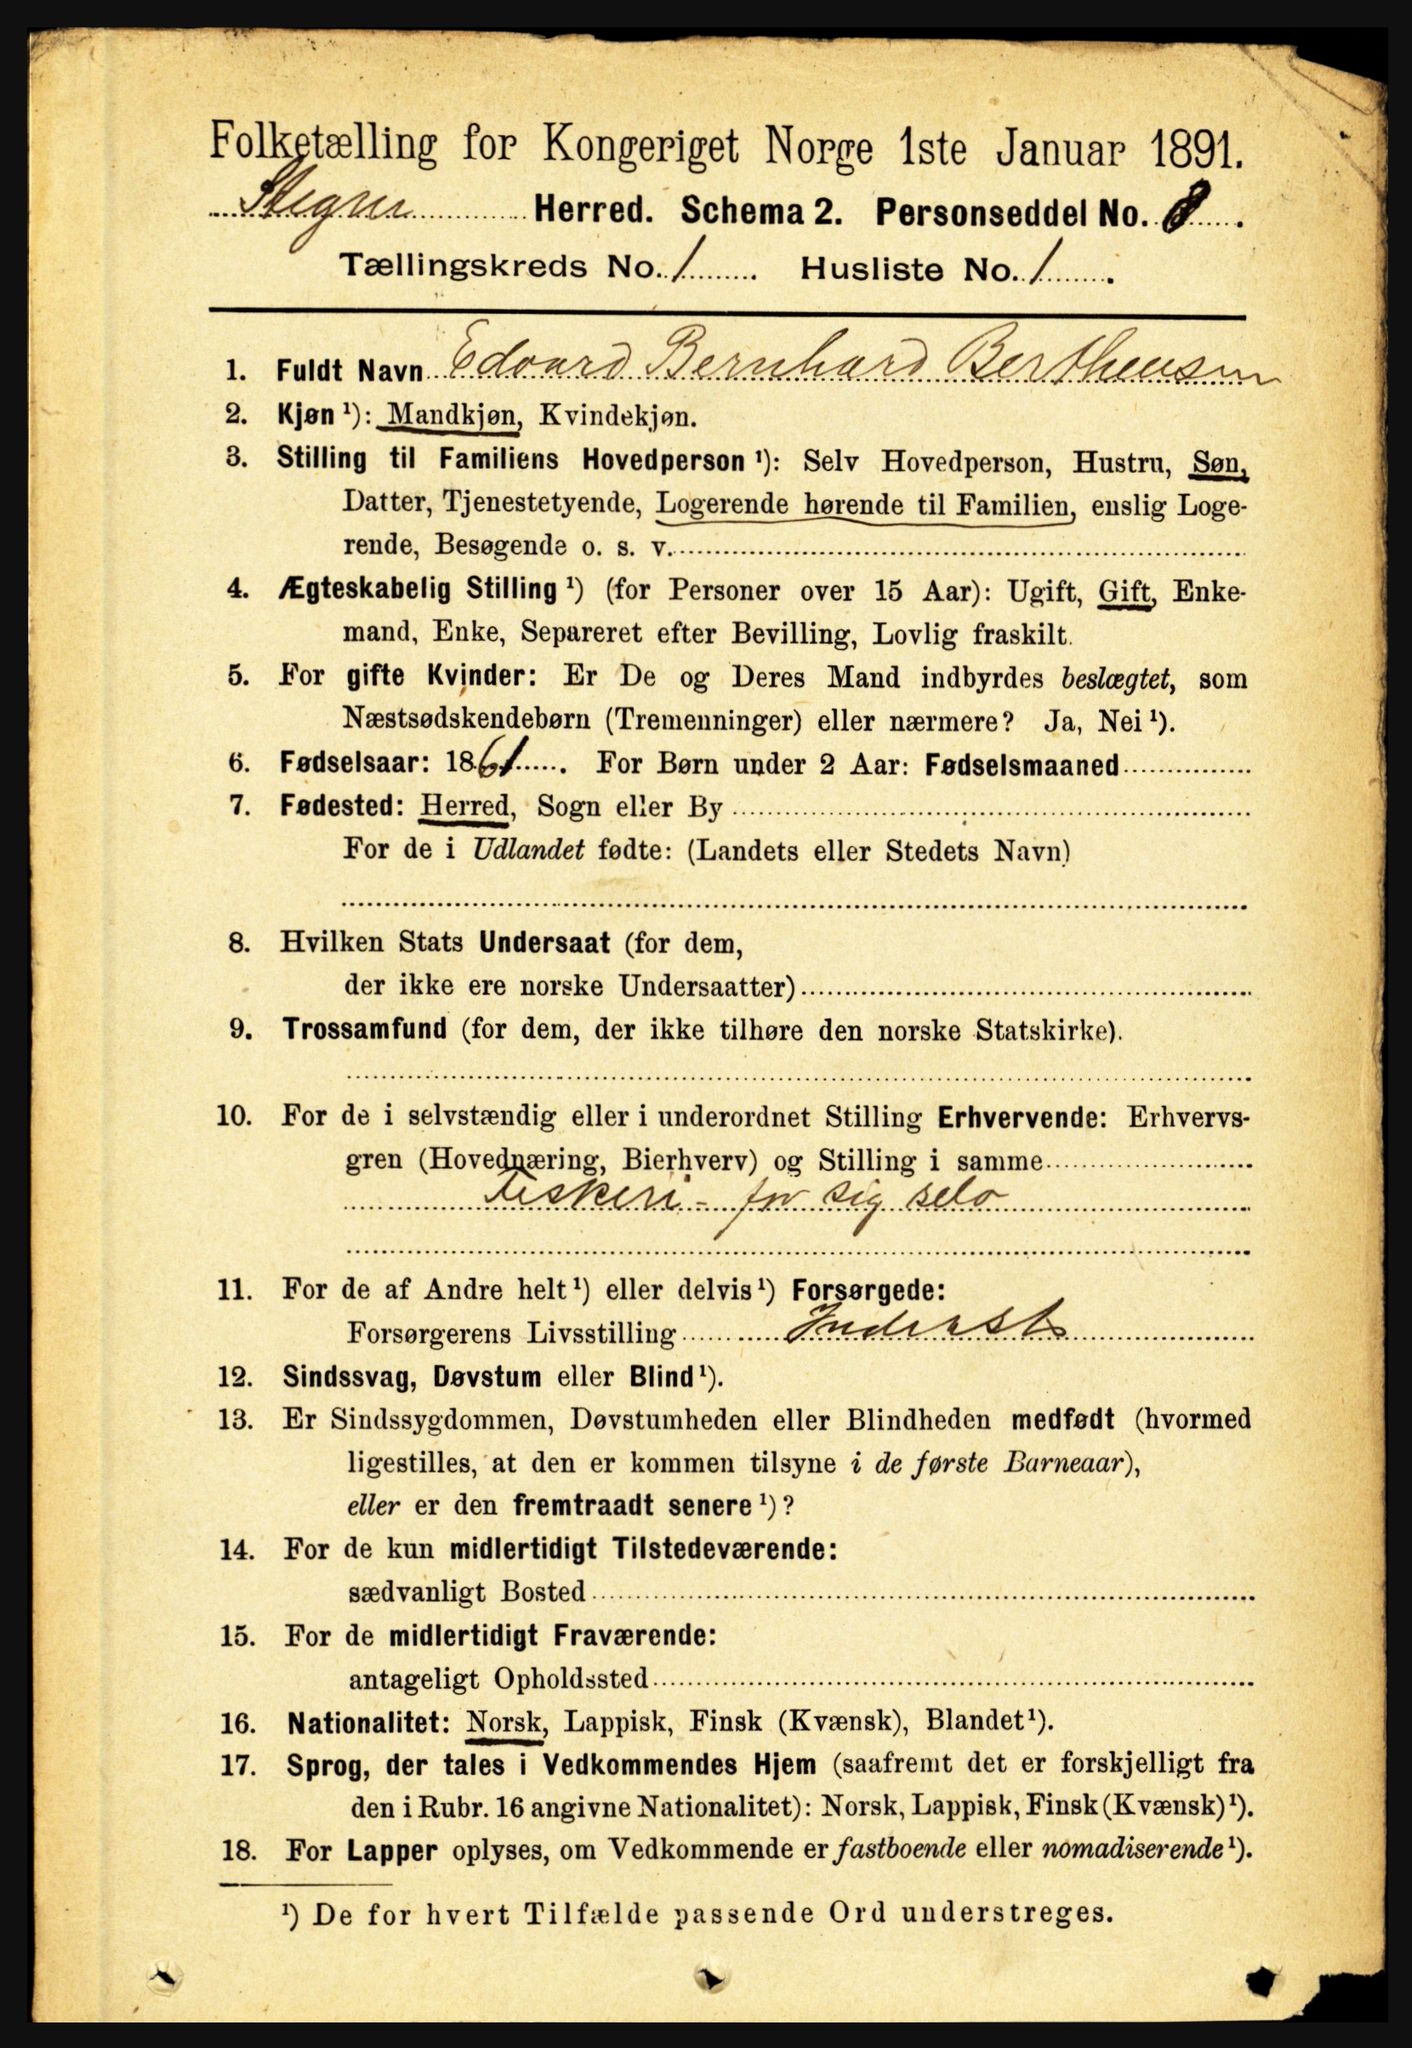 Folketælling for Kongeriget Norge 1ste Januar 1891.
Stegen Herred. Schema 2. Personseddel No. 8.
Tællingskreds No. 1. Husliste No. 1.
1. Fuldt Navn Edvard Bernhard Bertheusen
2. Kjøn ¹): Mandkjøn, Kvindekjøn.
3. Stilling til Familiens Hovedperson ¹): Selv Hovedperson, Hustru, Søn,
Datter, Tjenestetyende, Logerende hørende til Familien, enslig Loge-
rende, Besøgende o. s. v.
4. Ægteskabelig Stilling ¹) (for Personer over 15 Aar): Ugift, Gift, Enke-
mand, Enke, Separeret efter Bevilling, Lovlig fraskilt.
5. For gifte Kvinder: Er De og Deres Mand indbyrdes beslægtet, som
Næstsødskendebørn (Tremenninger) eller nærmere? Ja, Nei ¹).
6. Fødselsaar: 1861. For Børn under 2 Aar: Fødselsmaaned
7. Fødested: Herred, Sogn eller By
For de i Udlandet fødte: (Landets eller Stedets Navn)
8. Hvilken Stats Undersaat (for dem,
der ikke ere norske Undersaatter)
9. Trossamfund (for dem, der ikke tilhøre den norske Statskirke).
10. For de i selvstændig eller i underordnet Stilling Erhvervende: Erhvervs-
gren (Hovednæring, Bierhverv) og Stilling i samme
Fiskeri - for sig selv
11. For de af Andre helt ¹) eller delvis ¹) Forsørgede:
Forsørgerens Livsstilling Inderst
12. Sindssvag, Døvstum eller Blind ¹).
13. Er Sindssygdommen, Døvstumheden eller Blindheden medfødt (hvormed
ligestilles, at den er kommen tilsyne i de første Barneaar),
eller er den fremtraadt senere ¹)?
14. For de kun midlertidigt Tilstedeværende:
sædvanligt Bosted
15. For de midlertidigt Fraværende:
antageligt Opholdssted
16. Nationalitet: Norsk, Lappisk, Finsk (Kvænsk), Blandet ¹).
17. Sprog, der tales i Vedkommendes Hjem (saafremt det er forskjelligt fra
den i Rubr. 16 angivne Nationalitet): Norsk, Lappisk, Finsk (Kvænsk) ¹).
18. For Lapper oplyses, om Vedkommende er fastboende eller nomadiserende ¹).
¹) De for hvert Tilfælde passende Ord understreges.